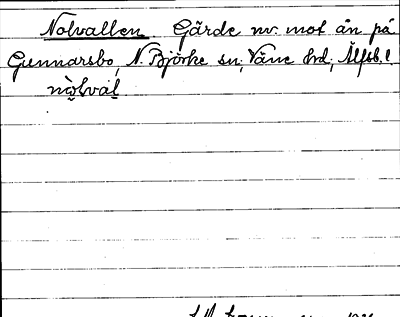 Nolvallen. Gärde nv. mot ån på
Gunnarsbo, N. Björke sn, Väne hd, Älfsb. l
nòlval